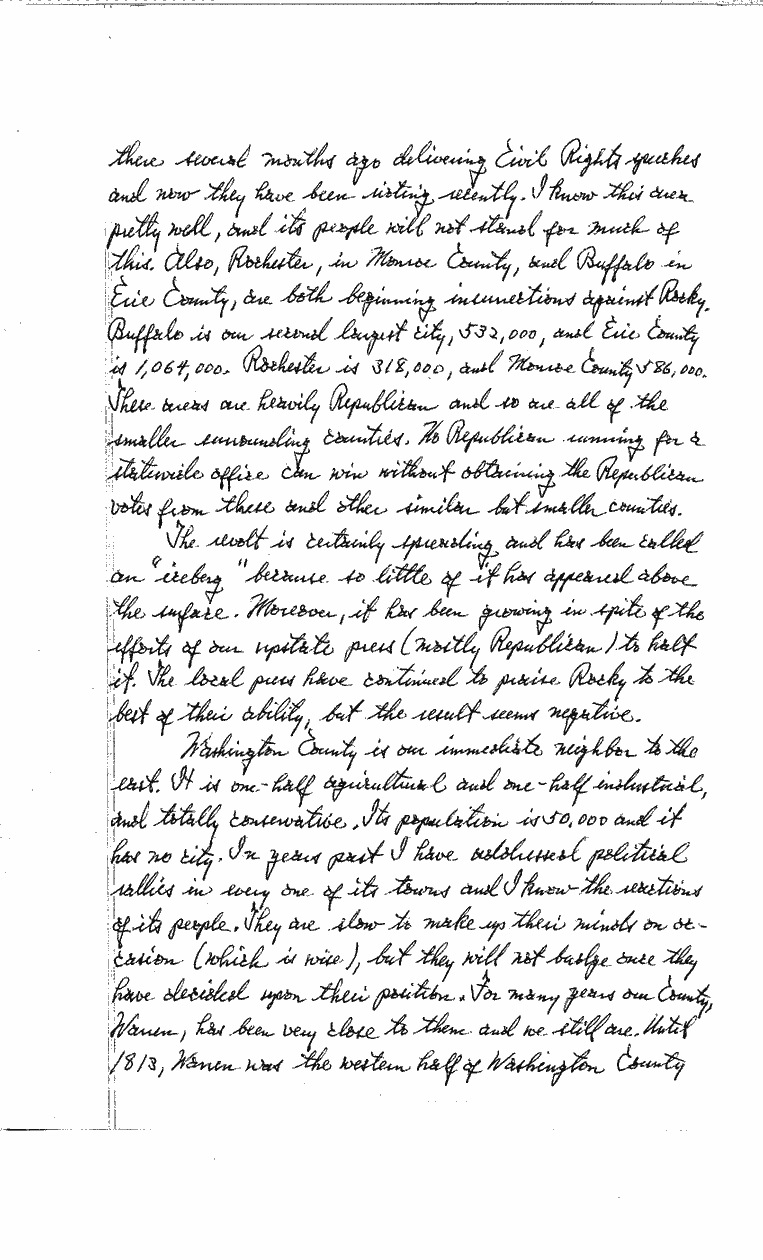 there several months ago delivering Civil Rights speeches
and now they have been rioting recently. I know this area
pretty well, and its people will not stand for much of
this. Also, Rochester, in Monroe County, and Buffalo in
Erie County, are both beginning insurrections against Rocky.
Buffalo is our second largest city, 532,000, and Erie County
is 1,064,000. Rochester is 318,000, and Monroe County 586,000.
These areas are heavily Republican and so are all of the
smaller surrounding counties. No Republican running for a
statewide office can win without obtaining the Republican
votes from these and other similar but smaller counties.
The revolt is certainly spreading and has been called
an "iceberg" because so little of it has appeared above
the surface. Moreover, it has been growing in spite of the
efforts of our upstate press (mostly Republican) to halt
it. The local press have continued to praise Rocky to the
best of their ability, but the result seems negative.
Washington County is our immediate neighbor to the
east. It is one-half agricultural and one-half industrial,
and totally conservative. Its population is 50,000 and it
has no city. In years past I have addressed political
rallies in every one of its towns and I know the reactions
of its people. They are slow to make up their minds on oc-
casion (which is wise), but they will not budge once they
have decided upon their position. For many years our County,
Warren, has been very close to them and we still are. Until
1813, Warren was the western half of Washington County